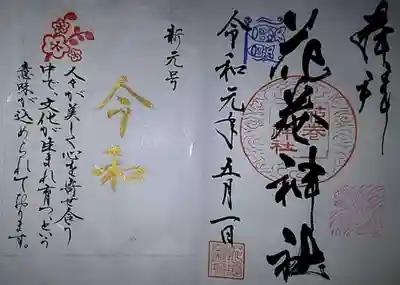 奉拝
花巻神社
令和元年五月一日
新元号
令和
人々が美しく心を寄せ合う
中で、文化が生まれ育つという
意味が込められております。